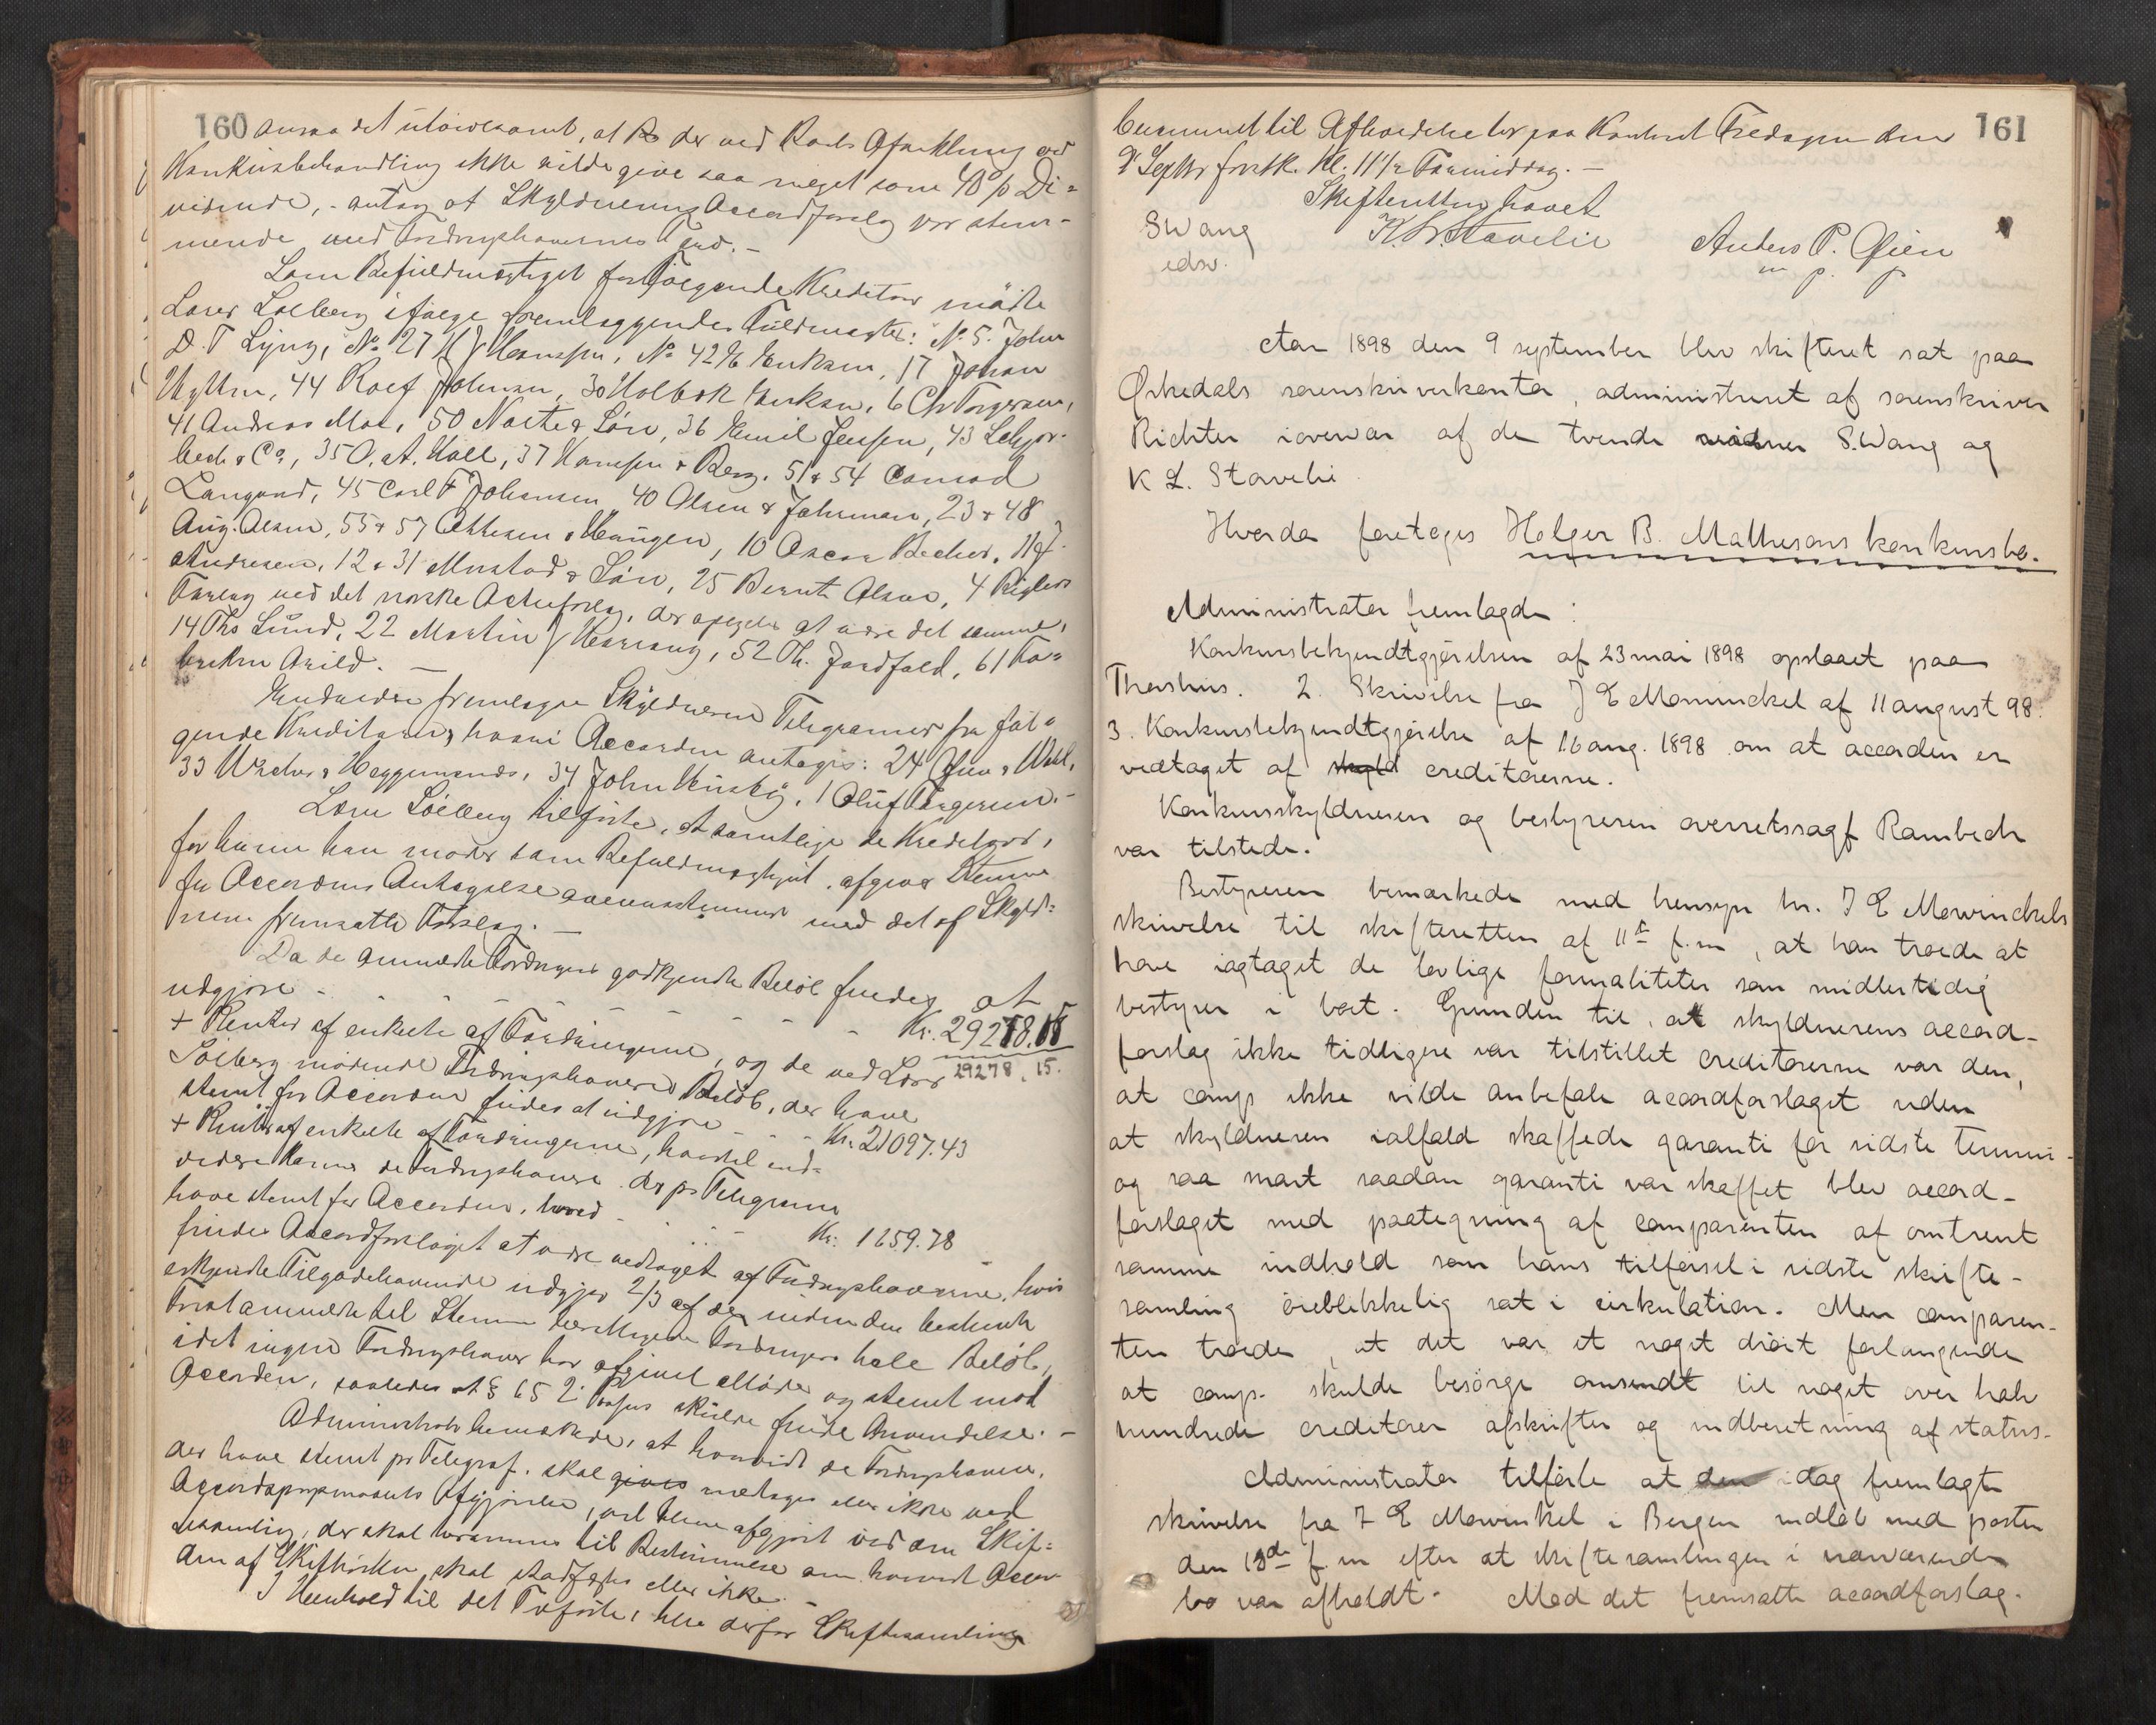 160 ansaa det utvivlsomt, at der ved Boets Afvikling ved
Konkursbehandling ikke vilde give saa meget som 40 % Di=
vidende, - antog at Skyldnerens Accordforslag var stem-
mende med Fordringshavernes Tarv. -
Som Befuldmægtiget for følgende Kreditorer mødte
Lars Solberg ifølge fremlæggende Fuldmagter: No 5. John
D. T Lyng, No 27 H J Hansen, No 42 E Eriksen, 17 Johan
44 Roef Johnsen, 30 Holbæk Eriksen, 6 Chr Torgersen,
41 Andreas Moe, 50 & Søn, 36 Emil Jensen, 43 Schjøl-
bech & Co, 35 O. A. Moll, 37 Hansen & Berg, 51 & 54 Conrad
Langaard, 45 Carl F Johansen, 40 Olsen & Jahnsen, 23 & 48
Aug. Olsen, 55 & 57 Ottesen & Haugen, 10 Oscar Becher, 11 J.
Andresen, 12 & 31 Mustad & Søn, 25 Bernt Olsen, 4
ved det norske Actieforlag, der opgives at være det samme,
14 Ths Lund, 22 Martin J 52 Th. Jordfald, 61 Fa=
briken Arild. -
Endvidere fremlagde Skyldneren Telegrammer fra føl=
gende Kreditorer, hvori Accorden antages: 24
33 & Heggemands, 34 John Huseby, 1 Oluf Torgersen. -
Lars Solberg tilførte, at samtlige de Kreditorer,
for hvem han møder som Befuldmægtiget, afgiver Stemme
for Accordens Antagelse overensstemmende med det af Skyld=
neren fremsatte Forslag. -
Da de anmeldte Fordringers godkjendte Beløb findes at
udgjøre - - - - - - Kr. 29278.15
+ Renter af enkelte af Fordringerne, og de ved Lars 29278.15.
Solberg mødende Fordringshaveres Beløb, der have
stemt for Accorden findes at udgjøre - - - Kr. 21097.43
+ Renter af enkelte af Fordringerne, hvortil end=
videre kommer de Fordringshavere der pr Telegram
have stemt for Accorden, hvoved - - - Kr. 1659.78
findes Accordforslaget at være vedtaget af Fordringshaverne, hvis
erkjendte Tilgodehavende udgjør 2/3 af de inden den bestemte
Frist anmeldte til Stemme berettigede Fordringers hele Beløb,
idet ingen Fordringshaver har afgivet Møde og stemt mod
Accorden, saaledes at § 65 2. Passus skulde finde Anvendelse. -
Administrator bemærkede, at hvorvidt de Fordringshavere,
der have stemt pr Telegraf, skal medtages eller ikke ved
Accordspørgsmaalets Afgjørelse, vil blive afgjort ved den Skif=
tesamling, der skal berammes til Bestemmelse om hvorvidt Accor-
den af Skifteretten skal stadfæstes eller ikke. -
I Henhold til det Tilførte, blev derfor Skiftesamling
161
berammet til Afholdelse her paa Kontoret Fredagen den
9' Septbr førstk. Kl: 11 1/2 Formiddag. -
Skifteretten hævet
SWang K. L. Stavelie Anders P. Øien
edsv. m. p. p
Aar 1898 den 9 september blev skifteret sat paa
Ørkedals sorenskriverkontor, administreret af sorenskriver
Richter i overvær af de tvende vidner S. Wang og
K L. Stavelie
Hvorda foretoges Holger B. Mathesons konkursbo.
Administrator fremlagde:
Konkursbekjendtgjørelsen af 23 mai 1898 opslaaet paa
Thorshus. 2. Skrivelse fra J E Mowinckel af 11 august 98.
3. Konkursbekjendtgjørelse af 16 aug. 1898 om at accorden er
vedtaget af skyld creditorerne.
Konkursskyldneren og bestyreren overretssagf Rambech
var tilstede.
Bestyreren bemærkede med hensyn hr. J E Mowinckels
skrivelse til skifteretten af 11te f.m, at han troede at
have iagttaget de lovlige formaliteter som midlertidig
bestyrer i boet. Grunden til, at skyldnerens accord-
forslag ikke tidligere var tilstillet creditorerne var den,
at comp ikke vilde anbefale accordforslaget uden
at skyldneren ialfald skaffede garanti for sidste termin-
og saa snart saadan garanti var skaffet blev accord-
forslaget med paategning af comparenten af omtrent
samme indhold som hans tilførsel i sidste skifte-
samling øieblikkelig sat i cirkulation. Men comparen-
ten troede, at det var et noget drøit forlangende
at comp. skulde besørge omsendt til noget over halv
hundrede creditorer afskrifter og indberetning af status.
Administrator tilførte at den idag fremlagte
skrivelse fra J E Mowinkel i Bergen indløb med posten
den 18de f.m efter at skiftesamlingen i nærværende
bo var afholdt. Med det fremsatte accordforslag.